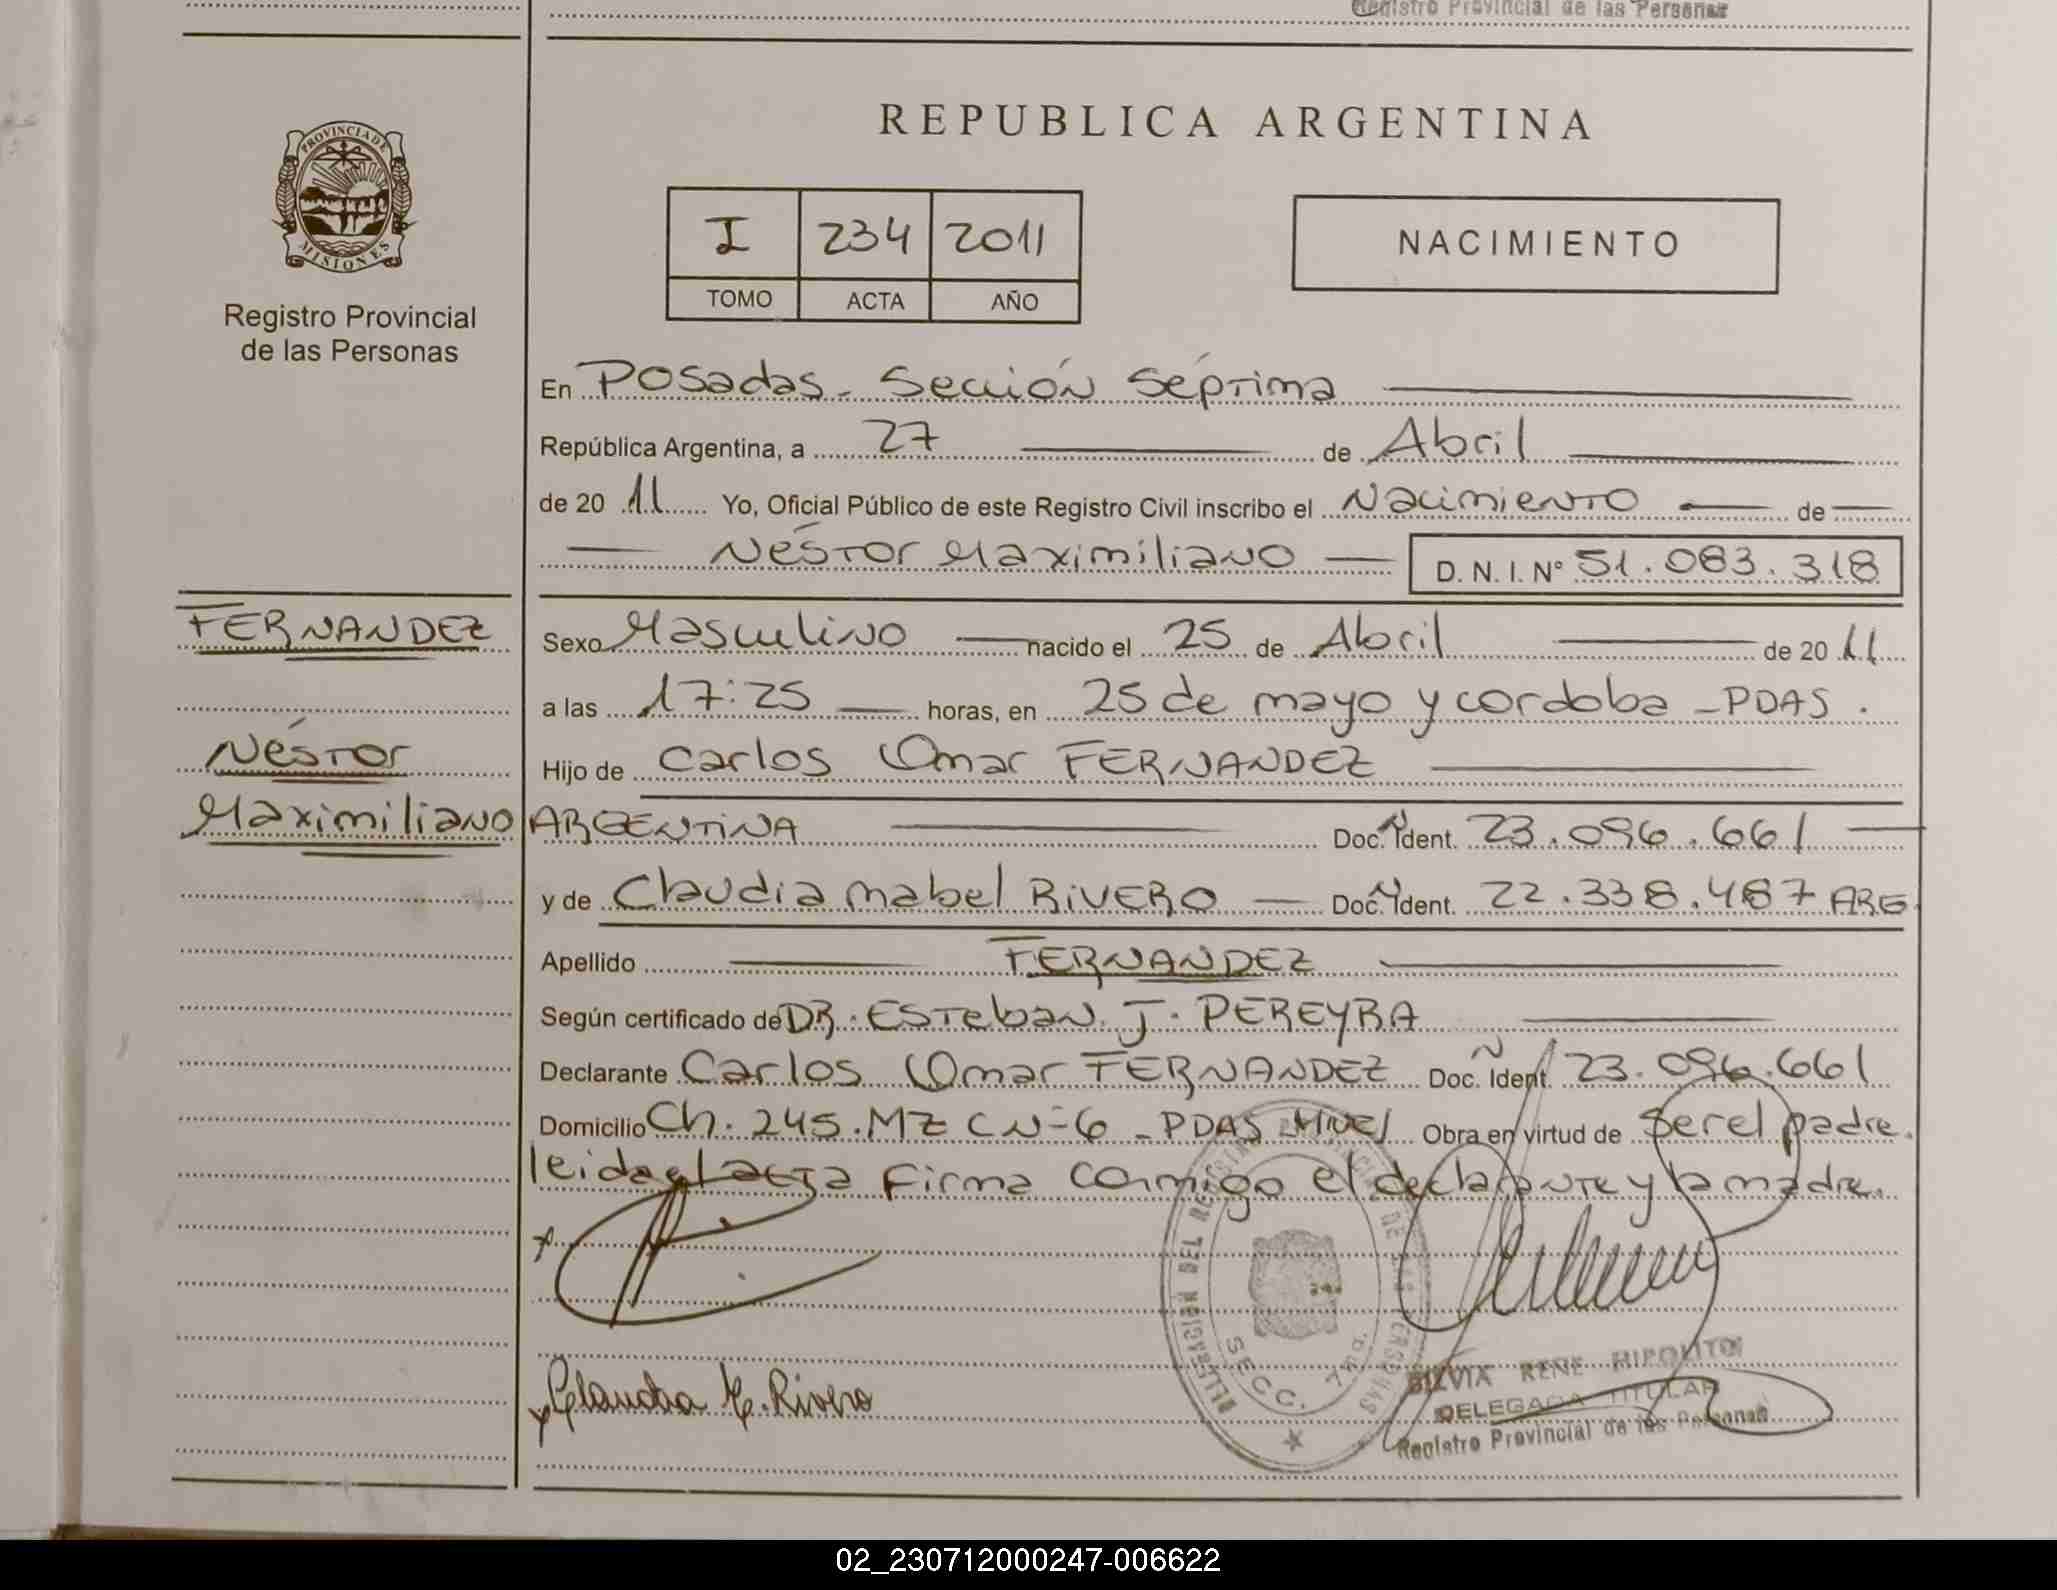 Registro Provincial de las Personas
PROVINCIA DE
MISIONES
Registro Provincial
de las Personas
REPUBLICA ARGENTINA
I 234 2011
TOMO ACTA AÑO
NACIMIENTO
En Posadas - Sección Séptima
República Argentina, a 27 de Abril
de 20 11 Yo, Oficial Público de este Registro Civil inscribo el Nacimiento de
Néstor Maximiliano D. N. I. Nº 51.083.318
FERNANDEZ
Néstor
Maximiliano
Sexo Masculino nacido el 25 de Abril de 20 11
a las 17:25 horas, en 25 de mayo y cordoba - PDAS.
Hijo de Carlos Omar FERNANDEZ
ARGENTINA Doc. Ident. 23.096.661
y de Claudia mabel RIVERO Doc. Ident. 22.338.487 ARG
Apellido FERNANDEZ
Según certificado de DR. Esteban J. PEREYRA
Declarante Carlos Omar FERNANDEZ Doc. Ident. 23.096.661
Domicilio Ch. 245. MZ C N-6 - PDAS Mnes Obra en virtud de ser el padre.
leida el acta firma conmigo el declarante y la madre.
Claudia M. Rivero
DELEGACION DEL REGISTRO PROVINCIAL DE LAS PERSONAS
SECC. 7ma.
SILVIA RENE HIPOLITO
DELEGADA TITULAR
Registro Provincial de las Personas
02_230712000247-006622